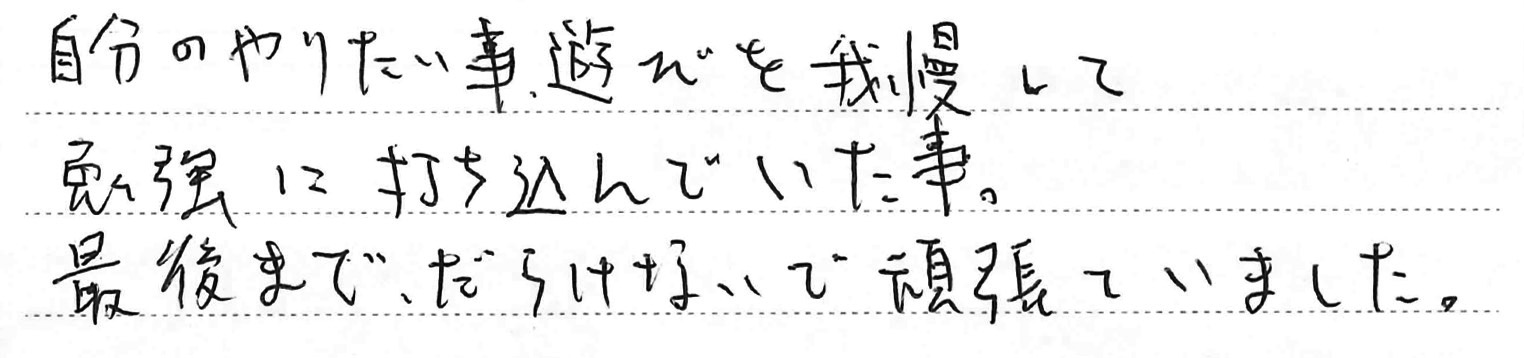 自分のやりたい事、遊びを我慢して
勉強に打ち込んでいた事。
最後まで、だらけないで頑張ていました。